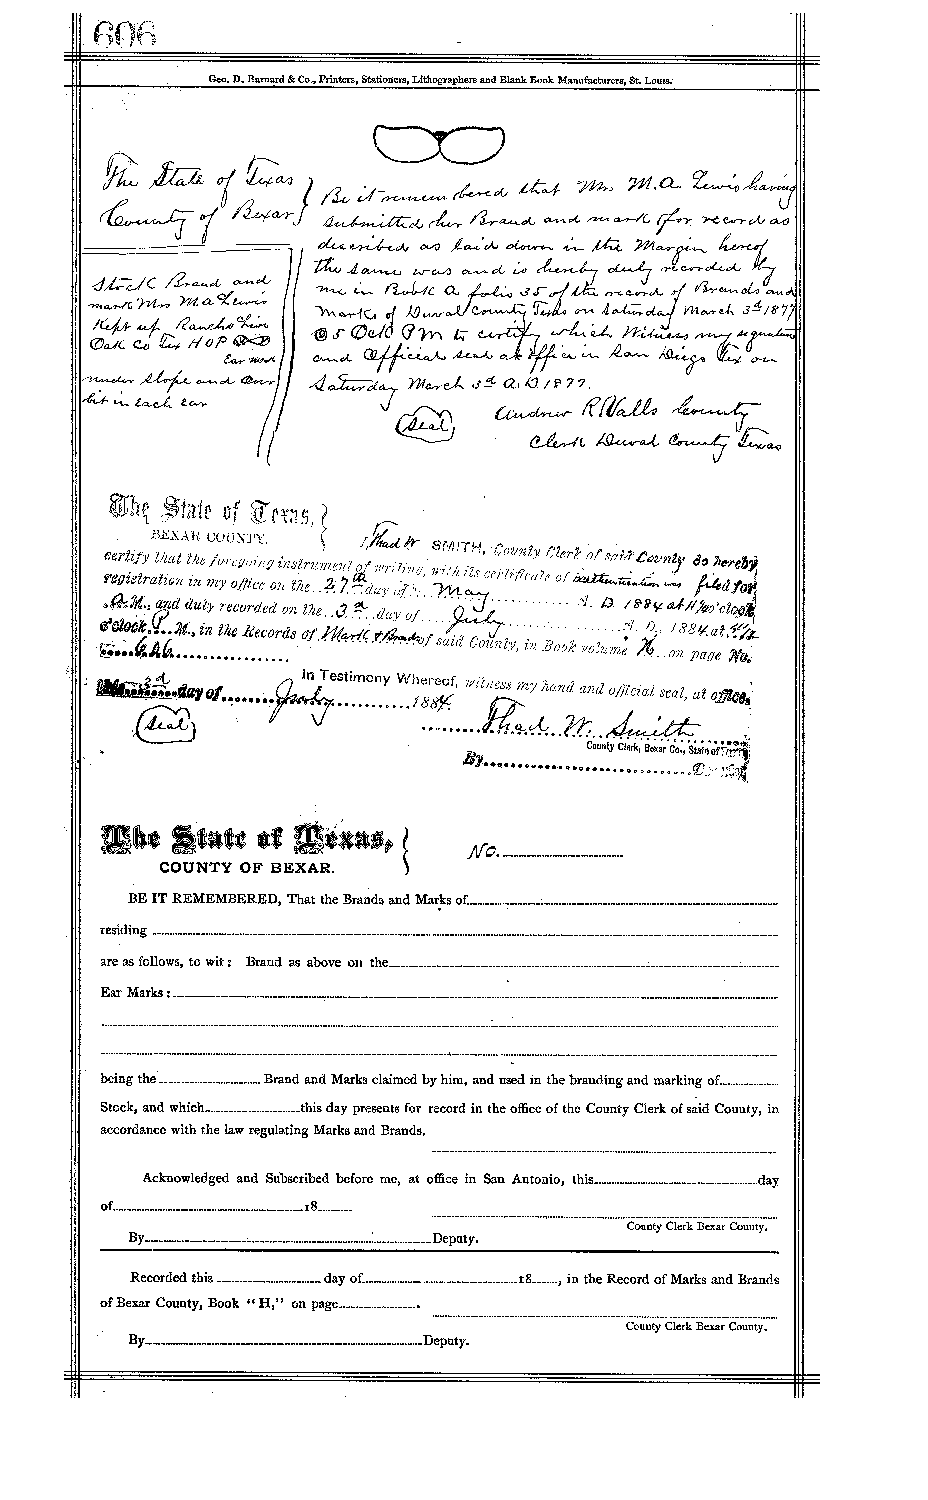 606
Geo. D. Barnard & Co., Printers, Stationers, Lithographers and Blank Book Manufacturers, St. Louis.
The State of Texas
County of Bexar
Be it remembered that Mrs M.A. Lewis having
submitted her Brand and mark for record as
described as laid down in the Margin hereof
the same was and is hereby duly recorded by
me in Book A folio 35 of the record of Brands and
Marks of Duval County Texas on Saturday March 3rd 1877
@ 5 Ock PM to certify which Witness my signature
and Official seal at office in San Diego Tex on
Saturday March 3rd A.D 1877.
(Seal) Andrew R. Valls County
Clerk Duval County Texas
Stock Brand and
mark Mrs M A Lewis
Kept up Rancho Live
Oak Co Tex HOP
Ear mark
under slope and Over
bit in Each Ear
The State of Texas,
BEXAR COUNTY.
I, Thad W SMITH, County Clerk of said County do hereby
certify that the foregoing instrument of writing, with its certificate of authentication was filed for
registration in my office on the 27th day of May A. D. 1884 at o'clock
M., and duly recorded on the 3rd day of July A. D., 1884, at
o'clock P. M., in the Records of Mark & Brands of said County, in Book volume on page No.
In Testimony Whereof, witness my hand and official seal, at office,
3rd day of July 1884.
(Seal) Thad W. Smith
County Clerk, Bexar Co., State of Texas
By
The State of Texas,
COUNTY OF BEXAR.
No.
BE IT REMEMBERED, That the Brands and Marks of
residing
are as follows, to wit: Brand as above on the
Ear Marks:
being the Brand and Marks claimed by him, and used in the branding and marking of
Stock, and which this day presents for record in the office of the County Clerk of said County, in
accordance with the law regulating Marks and Brands.
Acknowledged and Subscribed before me, at office in San Antonio, this day
of 18
County Clerk Bexar County.
By Deputy.
Recorded this day of 18 , in the Record of Marks and Brands
of Bexar County, Book "H," on page .
County Clerk Bexar County.
By Deputy.